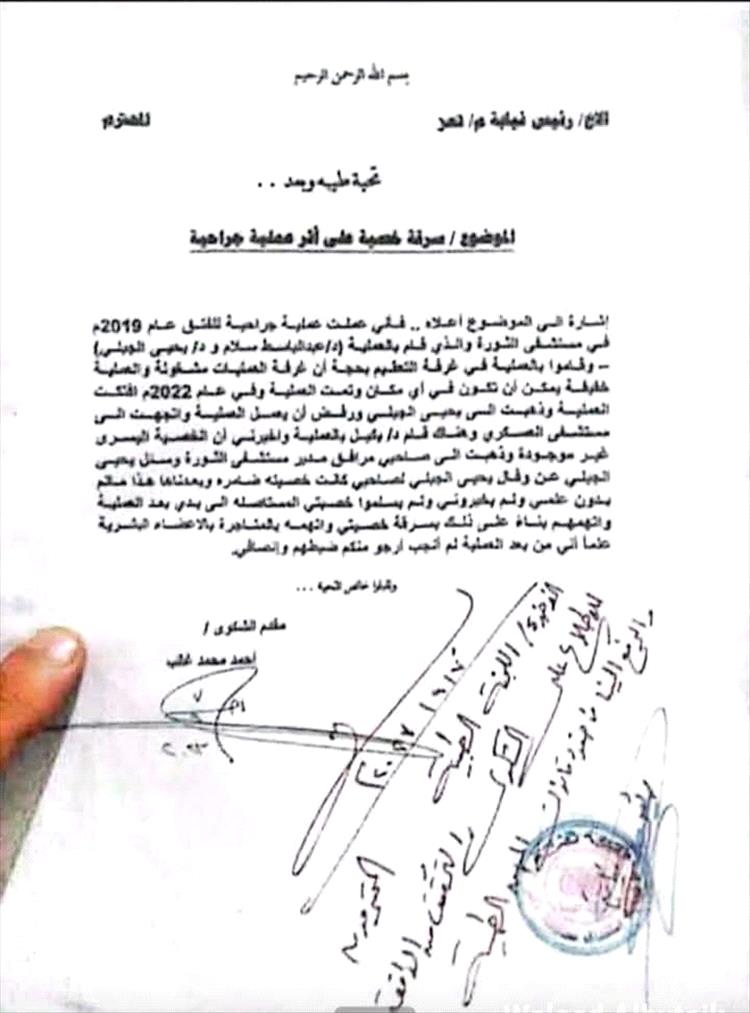 بسم الله الرحمن الرحيم
الاخ/ رئيس نيابة م/ تعز المحترم
تحية طيبه وبعد . .
الموضوع / سرقة خصية على أثر عملية جراحية
إشارة الى الموضوع أعلاه .. فأني عملت عملية جراحية للفتق عام 2019م
في مستشفى الثورة والذي قام بالعملية (د/عبدالباسط سلام و د/ يحيى الجبلي)
– وقاموا بالعملية في غرفة التعقيم بحجة أن غرفة العمليات مشغولة والعملية
خفيفة يمكن أن تكون في أي مكان وتمت العملية وفي عام 2022م افتكت
العملية وذهبت الى يحيى الجبلي ورفض أن يعمل العملية واتجهت الى
مستشفى العسكري وهناك قام د/ بكيل بالعملية واخبرني أن الخصية اليسرى
غير موجودة وذهبت الى صاحبي مرافق مدير مستشفى الثورة وسائل يحيى
الجبلي عن وقال يحيى الجبلي لصاحبي كانت خصيته ضامره وبعدناها هذا مالم
بدون علمي ولم يخبروني ولم يسلموا خصيتي المستاصله الى يدي بعد العملية
واتهمهم بناءً على ذلك بسرقة خصيتي واتهمه بالمتاجرة بالاعضاء البشرية
علماً أني من بعد العملية لم أنجب أرجو منكم ضبطهم وإنصافي.
وتقبلوا خالص التحيه ...
مقدم الشكوى /
احمد محمد غالب
الاخوة/ اللجنة الطبية
للاطلاع على الشكوى
والرفع الينا
الطبية